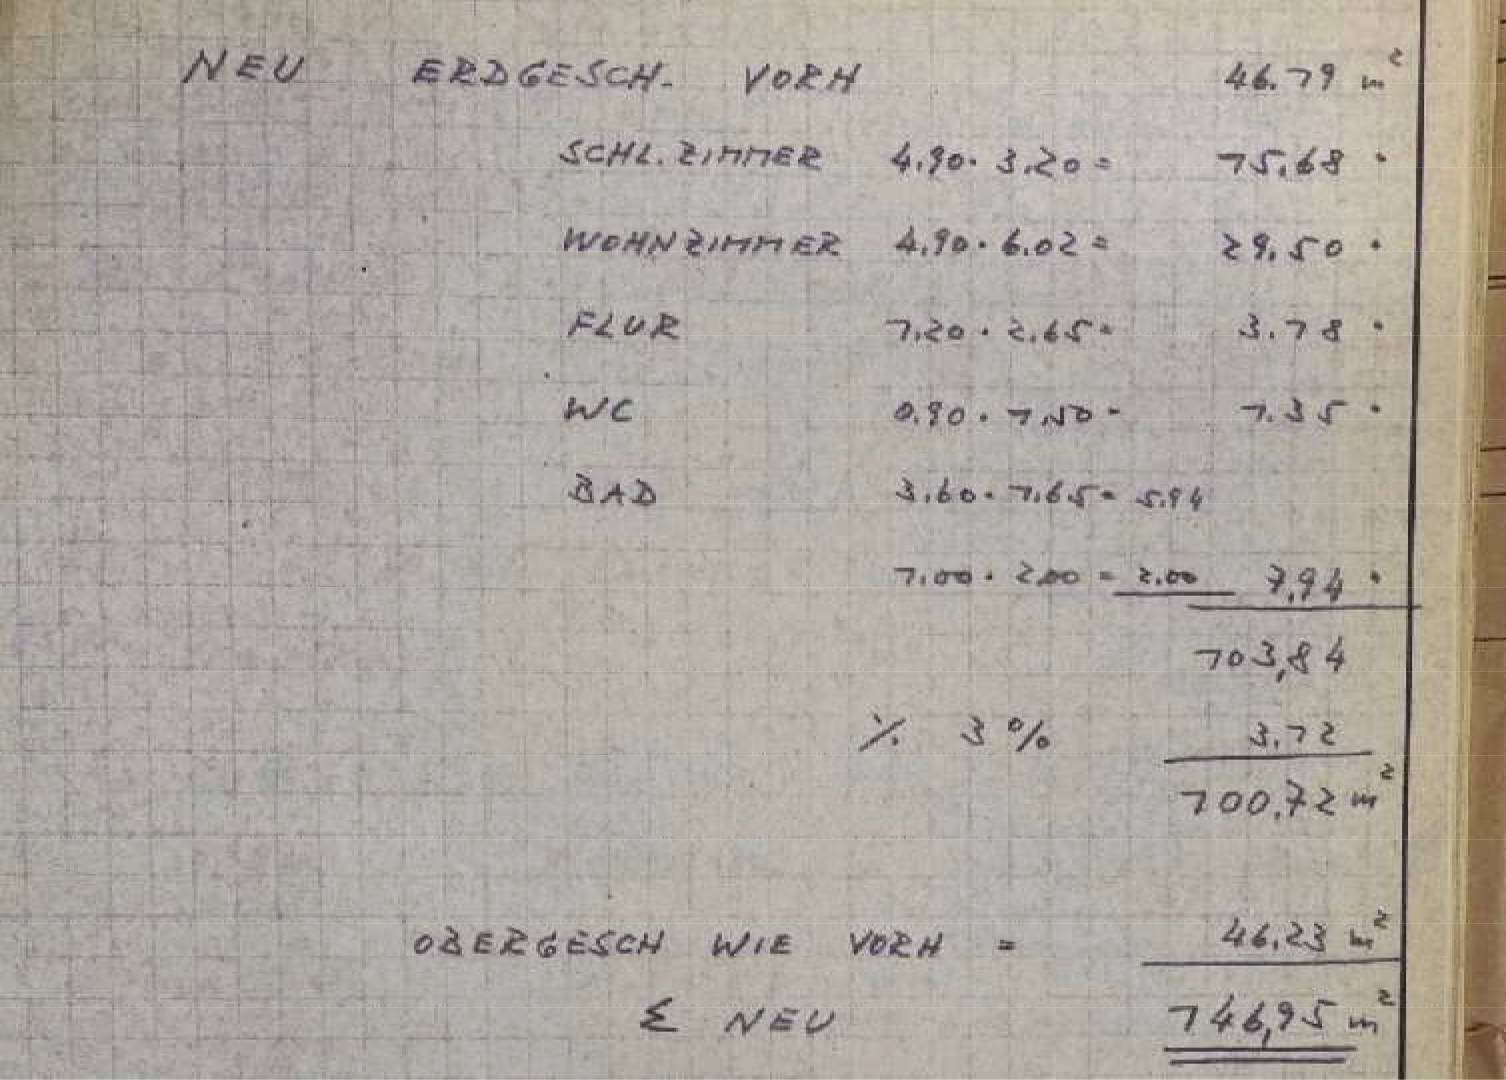 NEU ERDGESCH. VORH 46.19 m²
SCHL. ZIMMER 4.90 · 3.20 = 15,68 "
WOHNZIMMER 4.90 · 6.02 = 29.50 "
FLUR 1.20 · 2.65 = 3.18 "
WC 0.90 · 1.50 = 1.35 "
BAD 3.60 · 1.65 = 5.94
1.00 · 2.00 = 2.00 7,94 "
103,84
·/. 3 % 3.12
100,72 m²
OBERGESCH WIE VORH = 46,23 m²
Σ NEU 146,95 m²